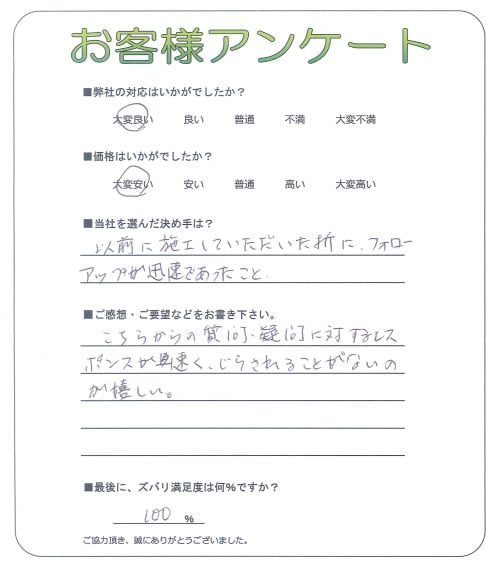 お客様アンケート
■弊社の対応はいかがでしたか？
大変良い 良い 普通 不満 大変不満
■価格はいかがでしたか？
大変安い 安い 普通 高い 大変高い
■当社を選んだ決め手は？
以前に施工していただいた折に、フォロー
アップが迅速であったこと.
■ご感想・ご要望などをお書き下さい。
こちらからの質問・疑問に対するレス
ポンスが早速く、じらされることがないの
が嬉しい。
■最後に、ズバリ満足度は何％ですか？
100 ％
ご協力頂き、誠にありがとうございました。